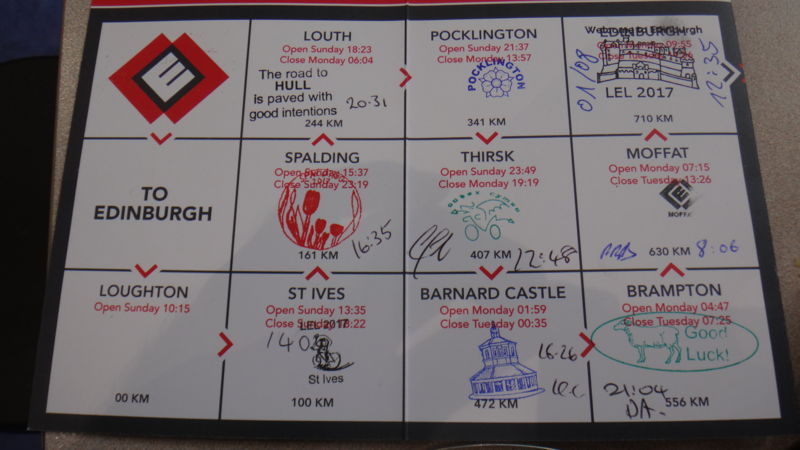 LOUTH
Open Sunday 18:23
Close Monday 06:04
The road to
HULL
is paved with
good intentions
20.31
244 KM
POCKLINGTON
Open Sunday 21:37
Close Monday 13:57
POCKLINGTON
341 KM
EDINBURGH
Welcome to Edinburgh
01/08
12:35
LEL 2017
710 KM
TO
EDINBURGH
SPALDING
Open Sunday 15:37
Close Sunday 23:19
161 KM
16:35
THIRSK
Open Sunday 23:49
Close Monday 19:19
407 KM
12:48
MOFFAT
Open Monday 07:15
Close Tuesday 13:26
MOFFA
630 KM
8:06
LOUGHTON
Open Sunday 10:15
00 KM
ST IVES
Open Sunday 13:35
Close Sunday 18:22
LEL 2017
St Ives
100 KM
BARNARD CASTLE
Open Monday 01:59
Close Tuesday 00:35
16.26
472 KM
BRAMPTON
Open Monday 04:47
Close Tuesday 07:25
Good
Luck!
21:04
DA.
556 KM